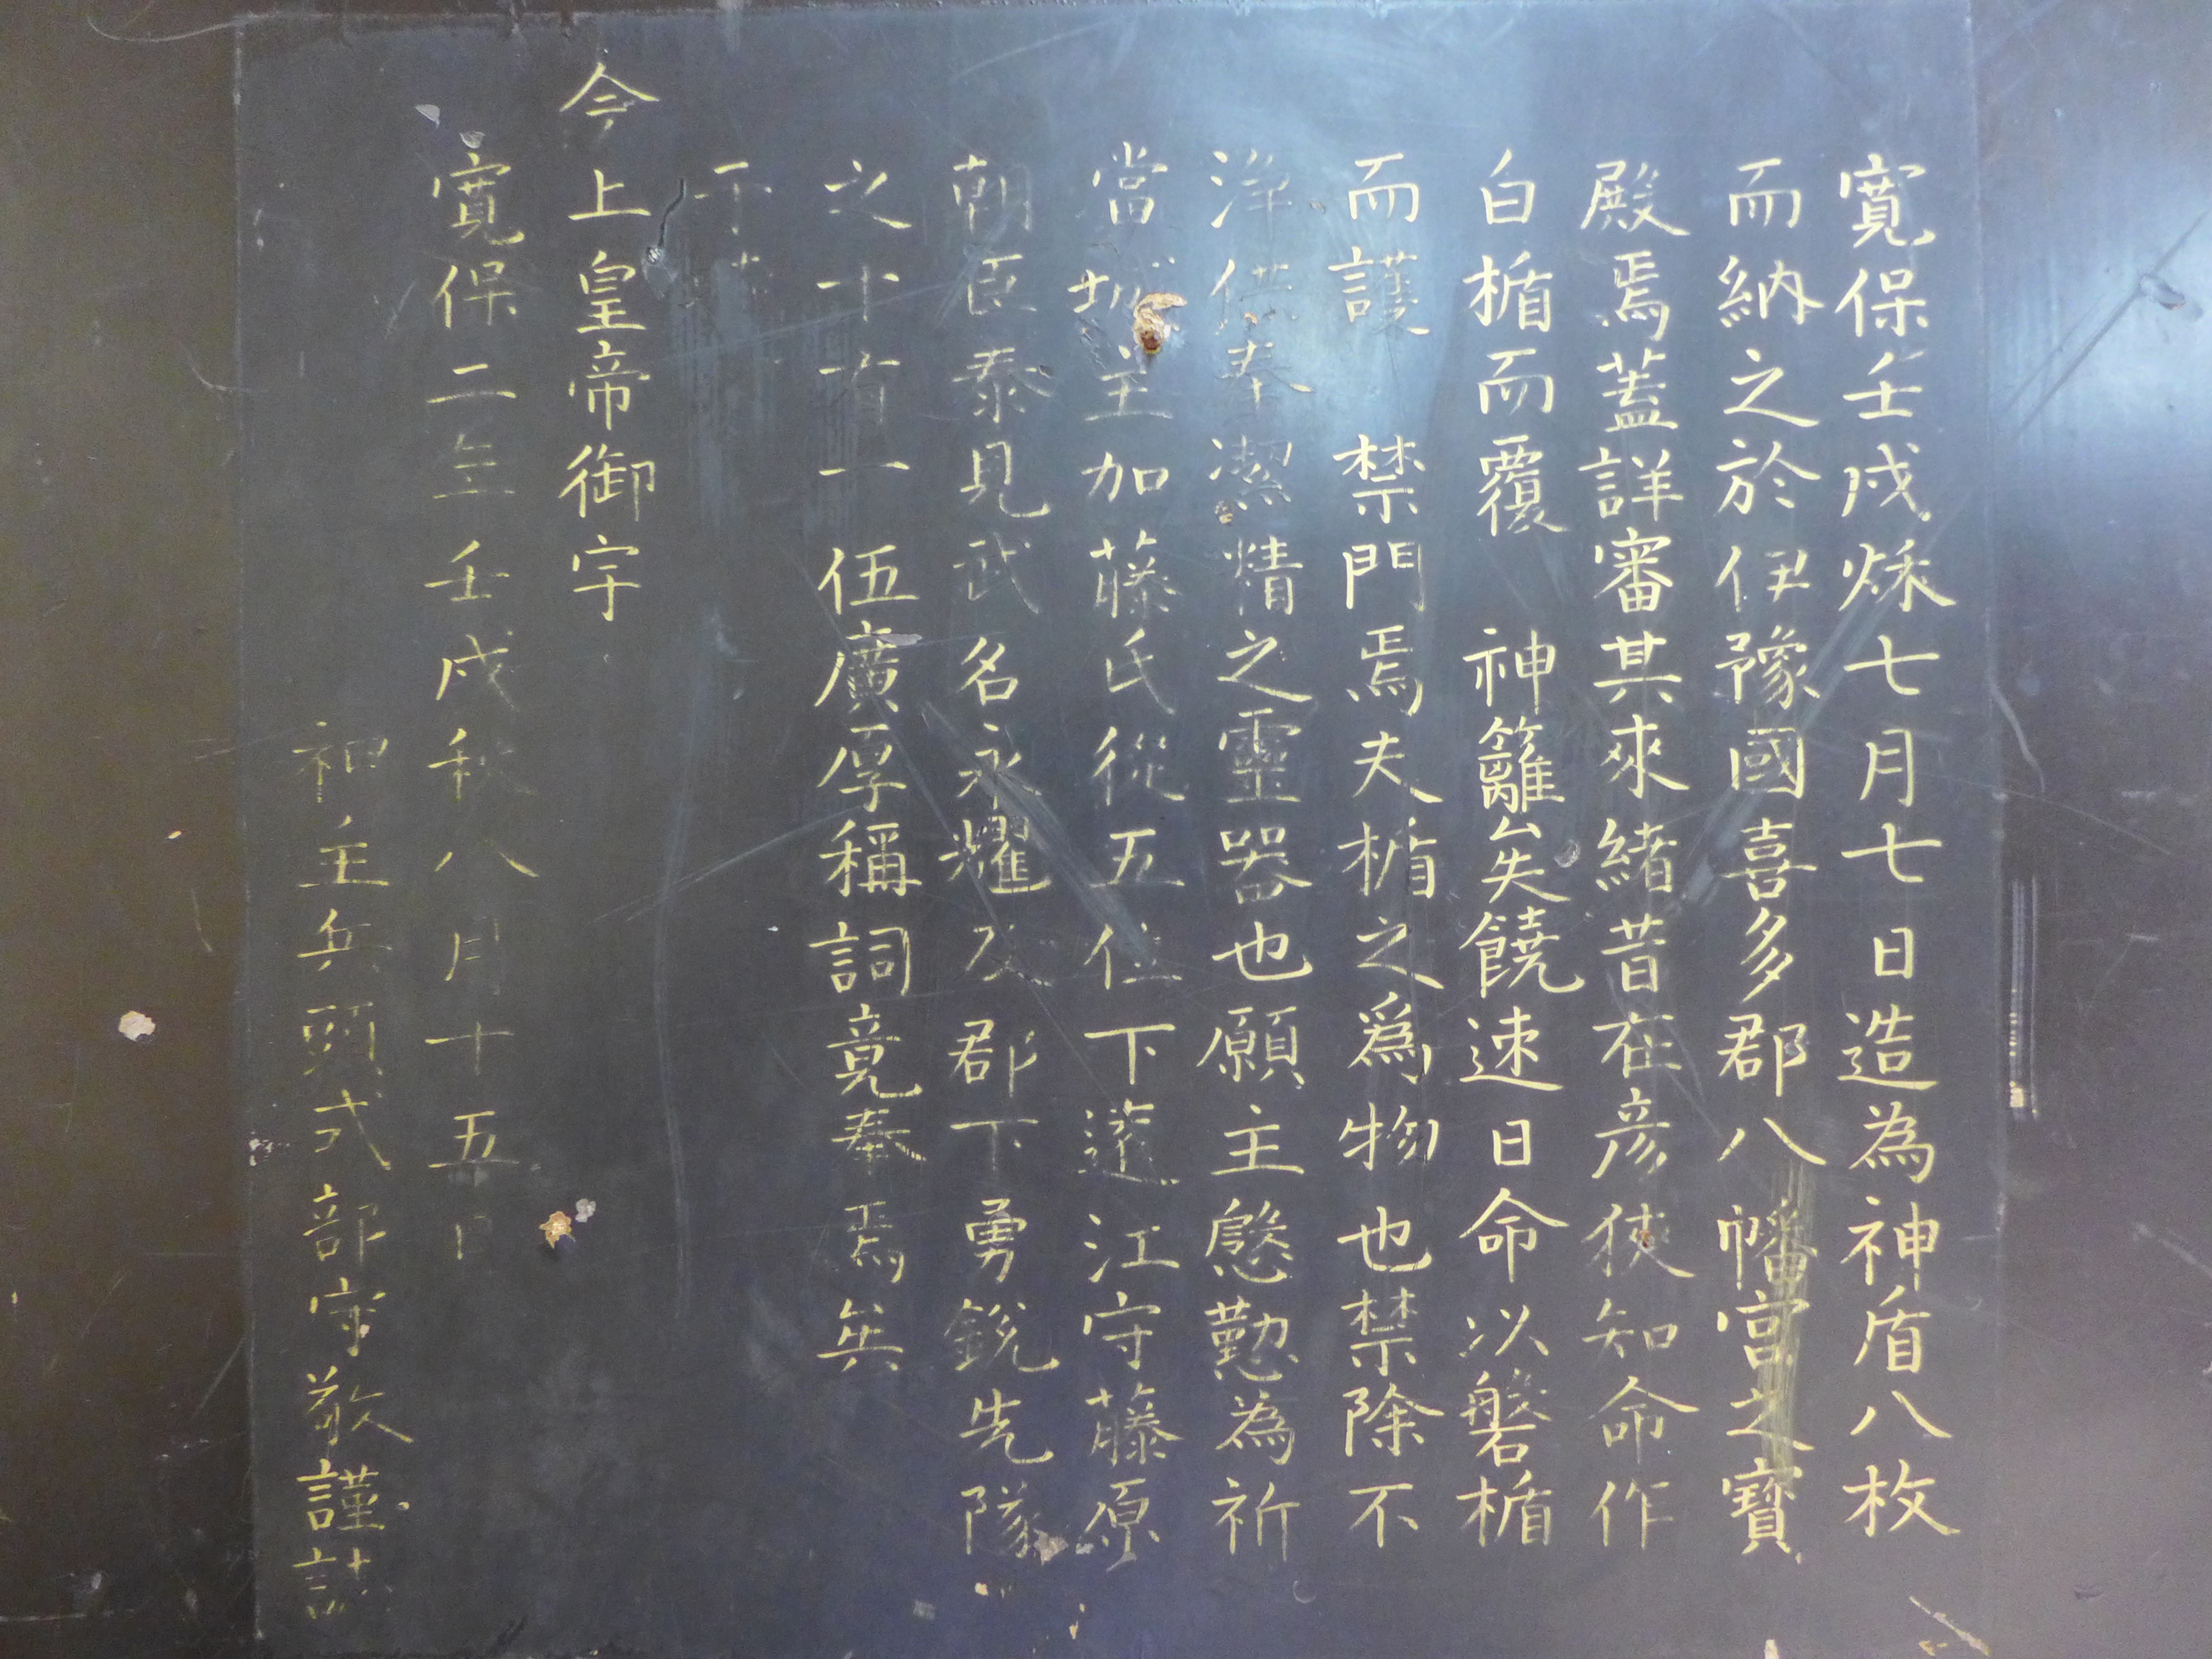 寛保壬戌烁七月七日造為神盾八枚
而納之於伊豫國喜多郡八幡宮之寶
殿焉蓋詳審其來緒昔在彦狹知命作
白楯而覆 神籬矣饒速日命以磐楯
而護 禁門焉夫楯之爲物也禁除不
浄供奉潔精之靈器也願主慇懃為祈
當城主加藤氏從五位下遠江守藤原
朝臣泰見武名永耀及郡下勇銳先隊
之十有一 伍廣厚稱詞竟奉焉矣
于
今上皇帝御宇
寛保二年壬戌秋八月十五日
神主兵頭式部守敬謹誌